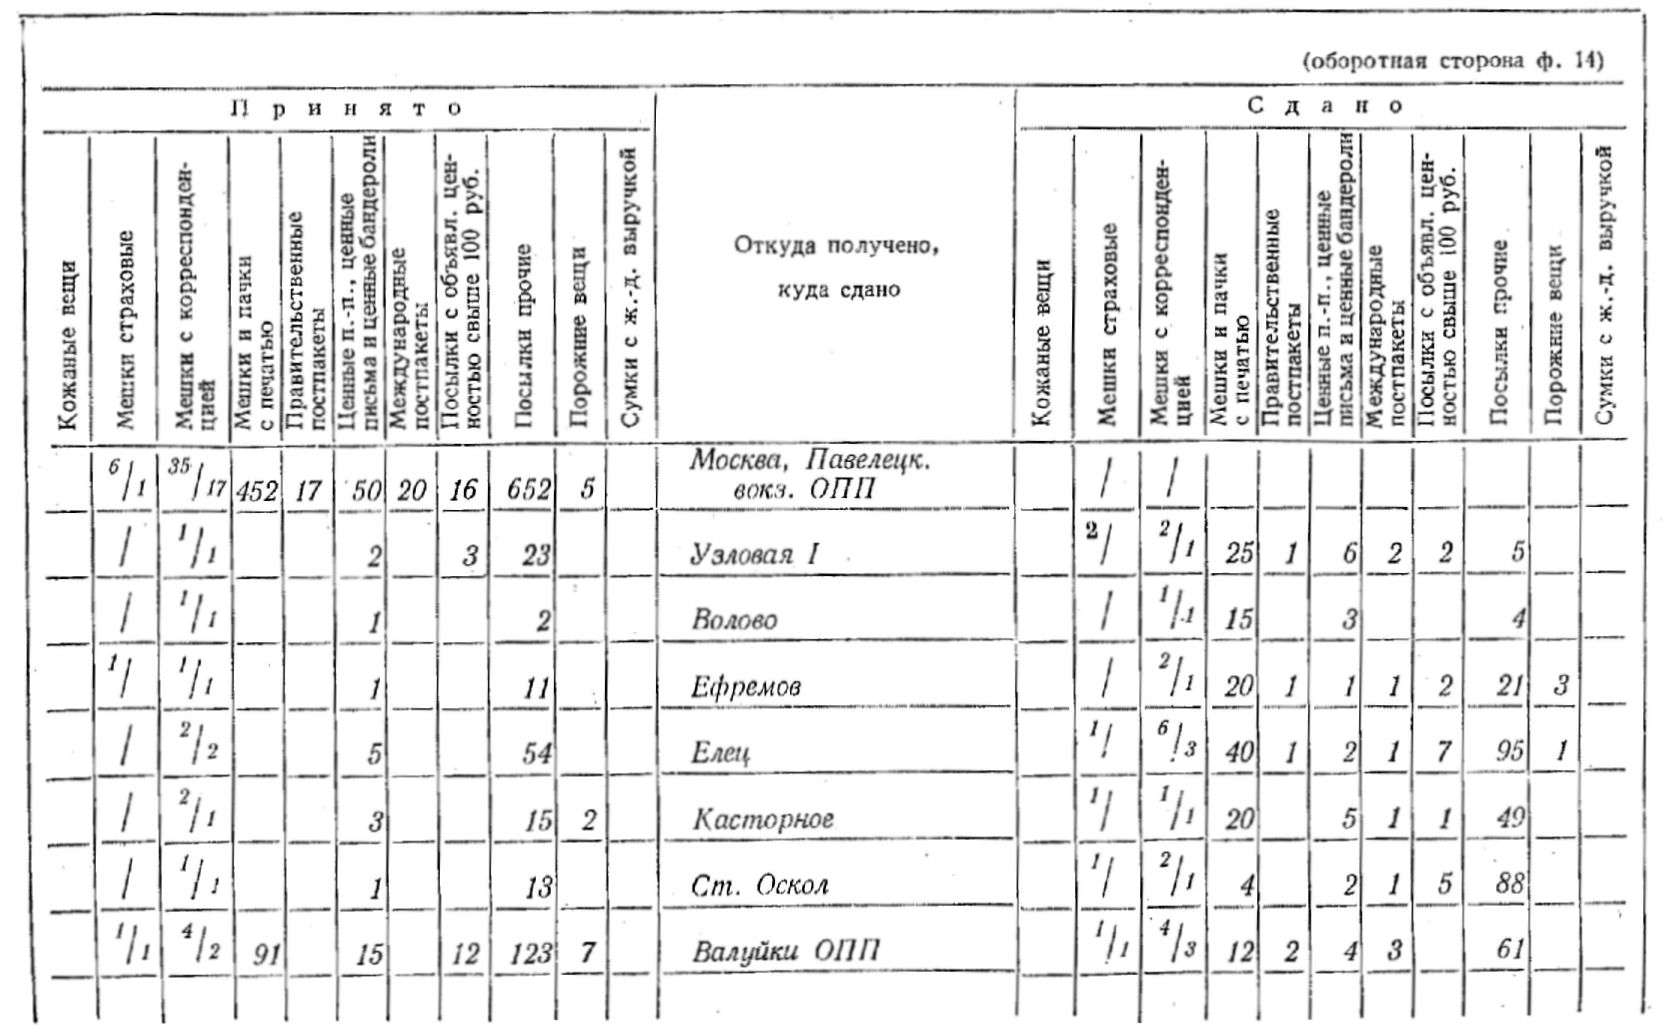 (оборотная сторона ф. 14)
Принято
Сдано
Кожаные вещи
Мешки страховые
Мешки с корреспонден-
цией
Мешки и пачки
с печатью
Правительственные
постпакеты
Ценные п.-п., ценные
письма и ценные бандероли
Международные
постпакеты
Посылки с объявл. цен-
ностью свыше 100 руб.
Посылки прочие
Порожние вещи
Сумки с ж.-д. выручкой
Откуда получено,
куда сдано
Кожаные вещи
Мешки страховые
Мешки с корреспонден-
цией
Мешки и пачки
с печатью
Правительственные
постпакеты
Ценные п.-п., ценные
письма и ценные бандероли
Международные
постпакеты
Посылки с объявл. цен-
ностью свыше 100 руб.
Посылки прочие
Порожние вещи
Сумки с ж.-д. выручкой
6/1 35/17 452 17 50 20 16 652 5 Москва, Павелецк. / /
вокз. ОПП
/ 1/1 2 3 23 Узловая I 2/ 2/1 25 1 6 2 2 5
/ 1/1 1 2 Волово / 1/1 15 3 4
1/ 1/1 1 11 Ефремов / 2/1 20 1 1 1 2 21 3
/ 2/2 5 54 Елец 1/ 6/3 40 1 2 1 7 95 1
/ 2/1 3 15 2 Касторное 1/ 1/1 20 5 1 1 49
/ 1/1 1 13 Ст. Оскол 1/ 2/1 4 2 1 5 88
1/1 4/2 91 15 12 123 7 Валуйки ОПП 1/1 4/3 12 2 4 3 61